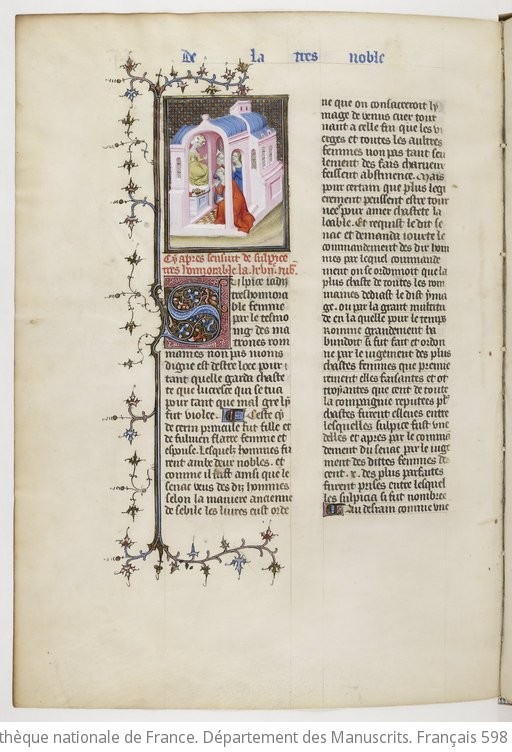 De la tres noble
Cy apres sensuit de sulpice
tres honnorable la .lxvii. rub.
Sulpice iadis
tres honnora
ble femme
par le tesmo
ing des ma
trones rom
maines non pas moins
digne est destre loee pour
tant quelle garda chaste
te que lucresce qui se tua
pour tant que mal gre ly
fut violee. Ceste cy
de certin fille et
de fulvien flatte femme et
espouse. Lesquelz hommes fu
rent ambedeux nobles. et
comme il fust ainsi que le
senat veus des dix hommes
selon la maniere ancienne
de sebile les livres eust orde
ne que on consacreroit ly
mage de venus
nant a celle fin que les vi
erges et toutes les aultres
femmes non pas tant seu
lement des fais charneux
feissent abstinence. Mais
pour certain que plus legi
erement peussent estre tour
nees pour amer chastete la
loable. Et requist le dit se
nat et demanda iouxte le
commandement des dix hom
mes par lequel commande
ment on se ordonnoit que la
plus chaste de toutes les rom
maines dediast le dist yma
ge. ou par la grant multitu
de en la quelle pour le temps
romme grandement ha
bundoit si fut fait et ordon
ne par le iugement des plus
chastes femmes que premie
rement elles faisantes et ot
troyantes que cent de toute
la compaignie reputees plus
chastes furent esleues entre
lesquelles sulpice fust vne
delles et apres par le comman
dement du senat par le iuge
ment des dittes femmes de
cent .x. des plus parfaites
furent prises entre lesquel
les sulpicia si fut nombree
Au desrain comme vne
thèque nationale de France. Département des Manuscrits. Français 598